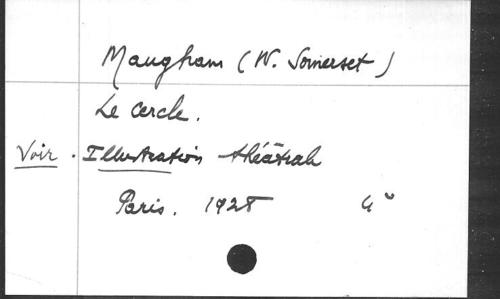 Maugham (W. Somerset)
Le Cercle.
Voir. Illustration théâtrale
Paris. 1928 4°